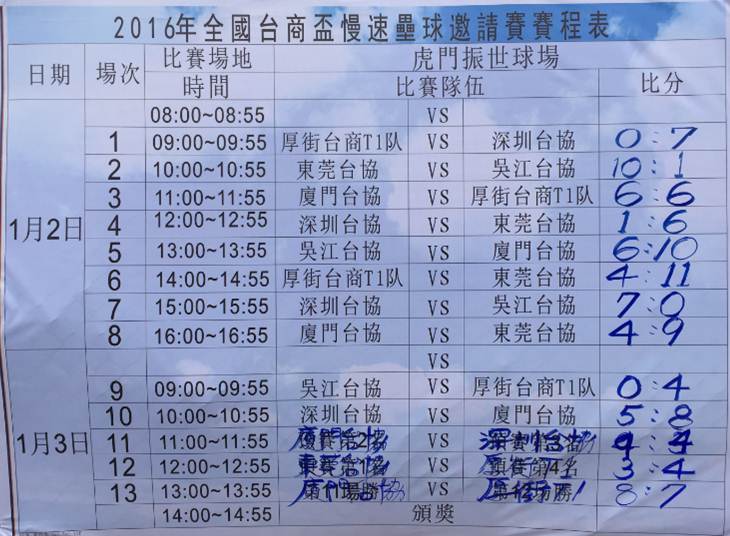 2016年全國台商盃慢速壘球邀請賽賽程表
日期 場次 比賽場地 虎門振世球場
時間 比賽隊伍 比分
08:00~08:55 VS
1 09:00~09:55 厚街台商T1队 VS 深圳台協 0:7
2 10:00~10:55 東莞台協 VS 吳江台協 10:1
3 11:00~11:55 廈門台協 VS 厚街台商T1队 6:6
1月2日 4 12:00~12:55 深圳台協 VS 東莞台協 1:6
5 13:00~13:55 吳江台協 VS 廈門台協 6:10
6 14:00~14:55 厚街台商T1队 VS 東莞台協 4:11
7 15:00~15:55 深圳台協 VS 吳江台協 7:0
8 16:00~16:55 廈門台協 VS 東莞台協 4:9
VS
9 09:00~09:55 吳江台協 VS 厚街台商T1队 0:4
10 10:00~10:55 深圳台協 VS 廈門台協 5:8
1月3日 11 11:00~11:55 廈門台协 VS 深圳台协
12 12:00~12:55 東莞台协 VS 3:4
13 13:00~13:55 VS 8:7
14:00~14:55 頒獎